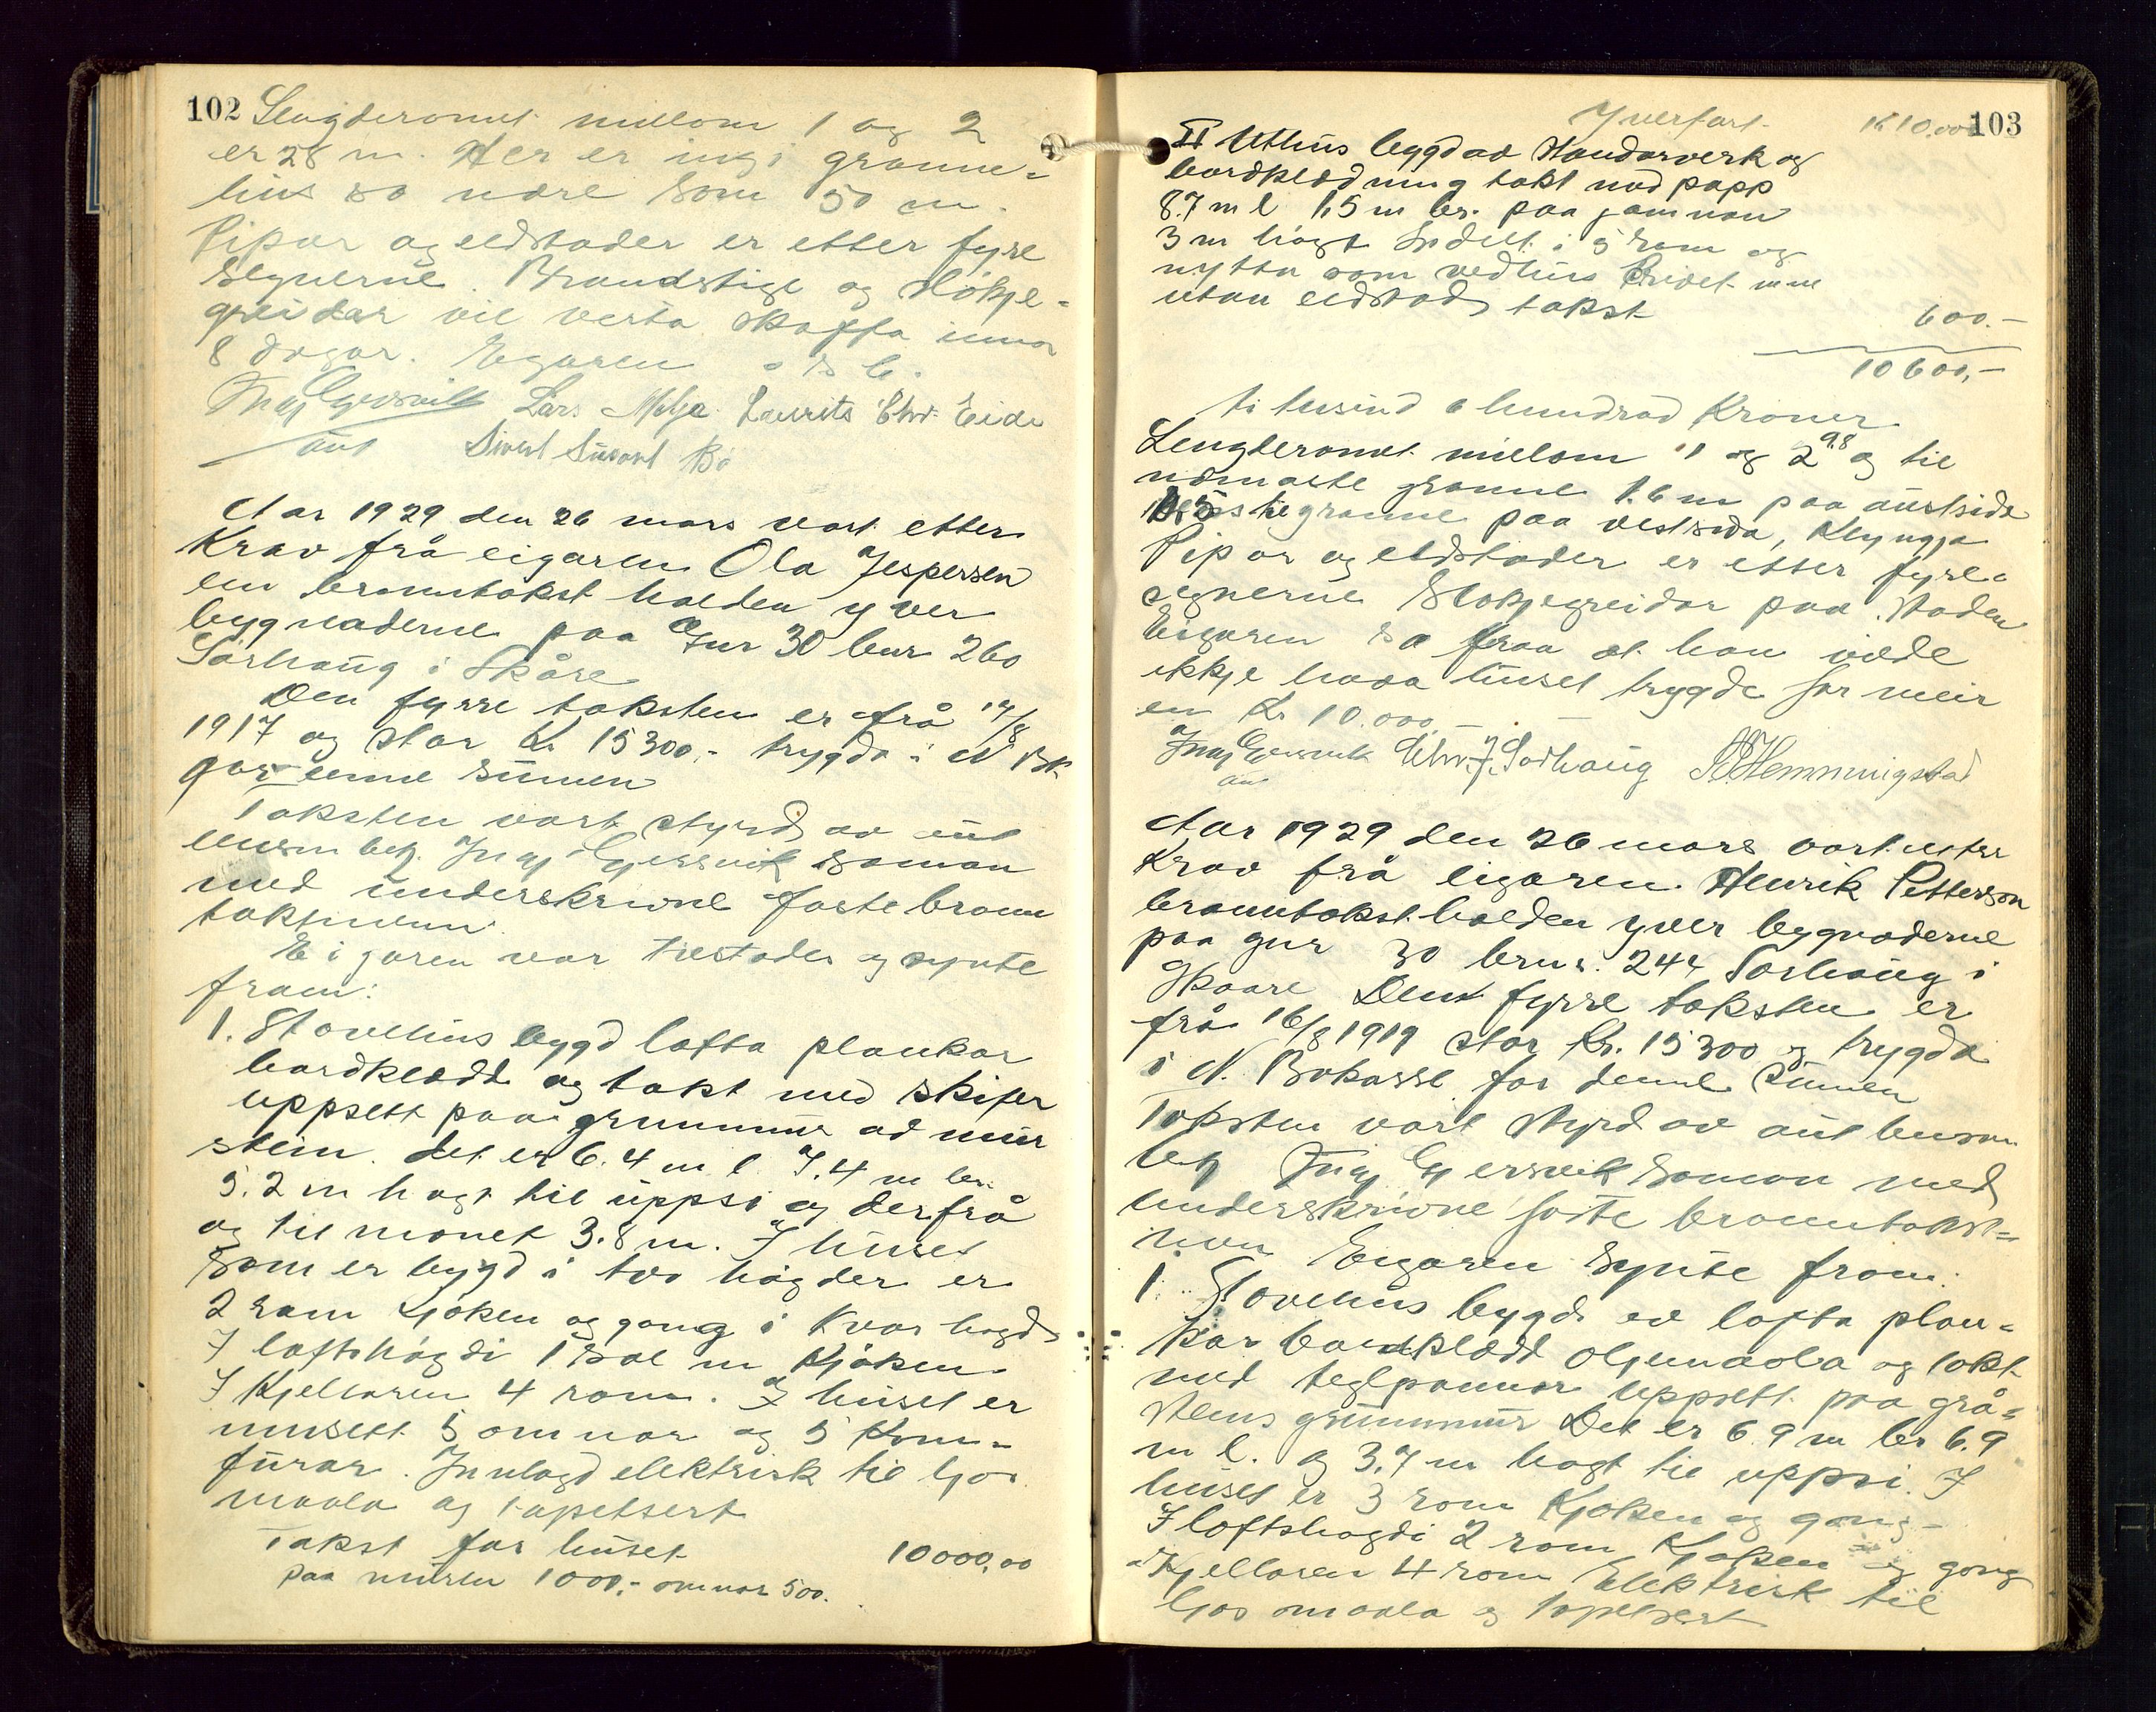 102 Lengderomet millom 1 og 2
er 28 m. Her er ingi granne-
hus so nære som 50 m.
Pipor og eldstader er etter fyre
segnerne. Brandstige og Slökje-
greidar vil verta skaffa innan
8 dogar. Egaren
Ing Gjersvik Lars Melge Laurits Chr. Eide
aut Sivert Bö
Aar 1929 den 26 mars vart etter
Krav frå eigaren Ola Jespersen
ein branntakst halden yver
bygnaderne paa Gnr 30 bnr 260
Sörhaug i Skåre
Den fyrre taksten er frå 14/8
1917 og stor Kr 15300,- trygda i N Bk
for same sumen
Taksten vart styrd av aut
lensm bef. Ing Gjersvik saman
med underskrivne faste brann
takstmenn.
Eigaren var tilstades og synte
fram:
1. Stovehus bygd lafta plankar
bordklædt og takt med skifer
uppsett paa grunnmur av mur
stein. Det er 6.4 m l 7.4 m br.
5.2 m hagt til uppsi og derfrå
og til mönet 3.8 m. I huset
som er bygd i tvo högder er
2 rom Kjöken og gong i kvar högd
I loftshögdi 1 sal m Kjöken.
I Kjellaren 4 rom. I huset er
innsett 5 omnar og 5 Kom-
fürar. Innlagd elektrisk til ljos
maala og tapetsert
Takst for huset 10000,00
paa muren 1000,- omnar 500.
Yverfort. K 10.000 103
II Uthus bygd av Standarverk og
bordklædning takt med papp
8.7 m l 1,5 m br. paa jamnen
3 m högt Indelt i 5 rom og
nytta som vedhus Privet m m
utan eldstad takst
600.-
10600,-
ti tusind 6 hundrad Kroner
Lengderomet millom 1 og 2 9.8 og til
nærmaste granne 1.6 m paa austsida
til granne paa vestsida, Klyngja
Pipor og eldstader er etter fyre-
segnerne Slökjegreidor paa staden
Eigaren sa fraa at han vilde
ikkje hava huset trygda for meir
en Kr 10.000,-
Ing Gjersvik Chr. J. Sörhaug Hemmingstad
aut
Aar 1929 den 26 mars vart etter
Krav frå eigaren Henrik Petterson
branntakst halden yver bygnaderne
paa gnr 30 brnr. 244 Sörhaug i
Skaare Den fyrre taksten er
frå 16/8 1919 stor Kr. 15300 og trygda
i N. Bokasse for denne sumen
Taksten vart styrd av aut lensm
bef Ing Gjersvik saman med
underskrivne faste branntakst-
menn Eigaren synte fram:
1. Stovehus bygd av lafta plan-
kar bordklædt oljemaala og takt
med teglpannor uppsett paa grå-
steins grunnmur Det er 6.9 m br 6.9
m l. og 3.7 m hagt til uppsi. I
huset er 3 rom Kjöken og gong-
I loftshögdi 2 rom Kjöken og gong
Kjellaren 4 rom Elektrisk til
ljos maala og tapetsert